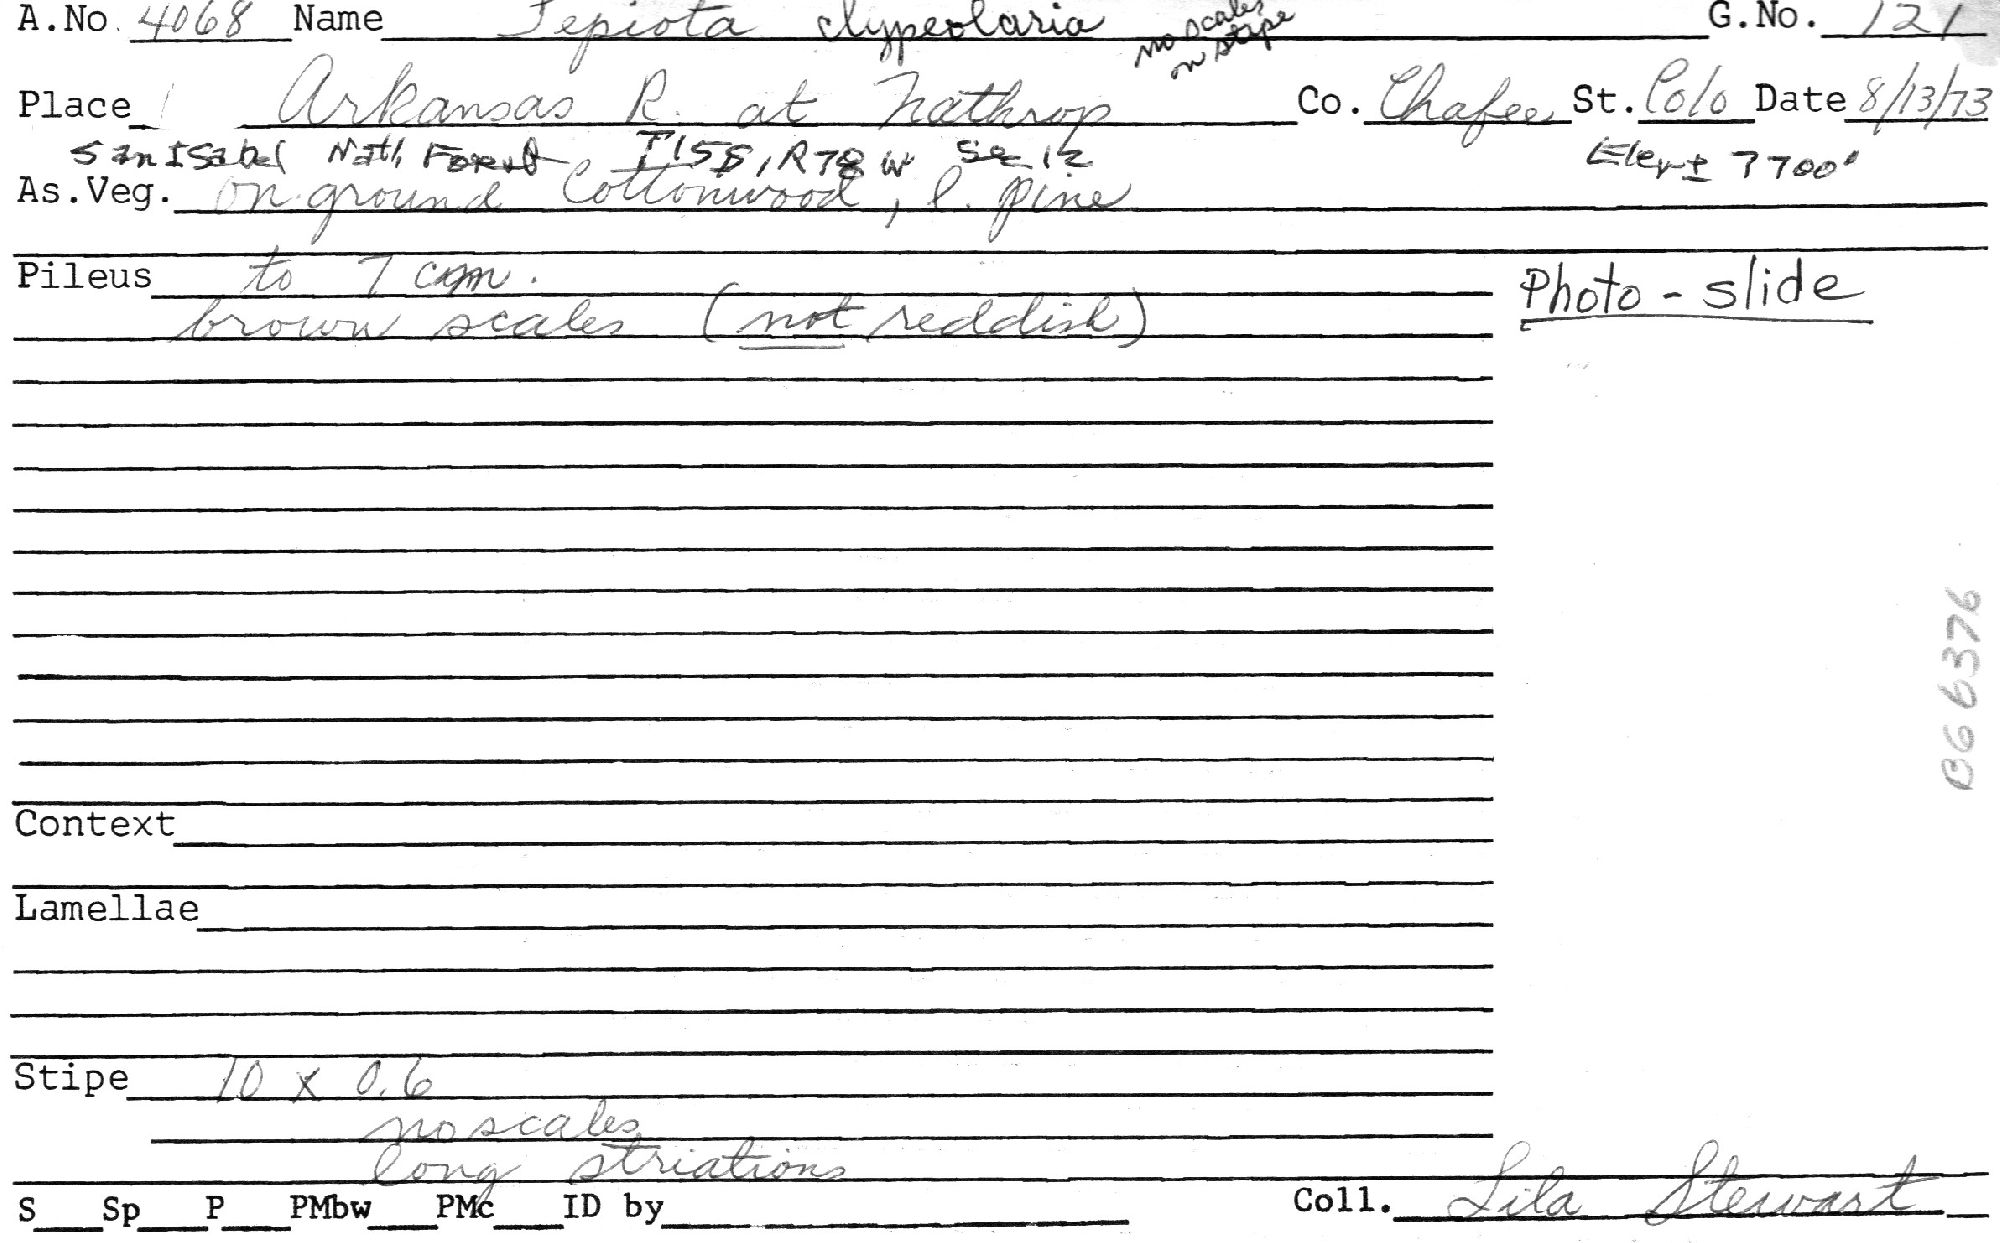 A.No. 4068 Name Lepiota clypeolaria no scales on stipe G.No. 121
Place Arkansas R. at Nathrop Co. Chafee St. Colo Date 8/13/73
San Isabel Natl, Forest T15S, R78W Sec 12 Elev ± 7700'
As.Veg. on ground Cottonwood, l. pine
Pileus to 7 cm.
brown scales (not reddish)
Photo - slide
B66376
Context
Lamellae
Stipe 10 x 0.6
no scales
long striations
S Sp P PMbw PMc ID by Coll. Lila Stewart